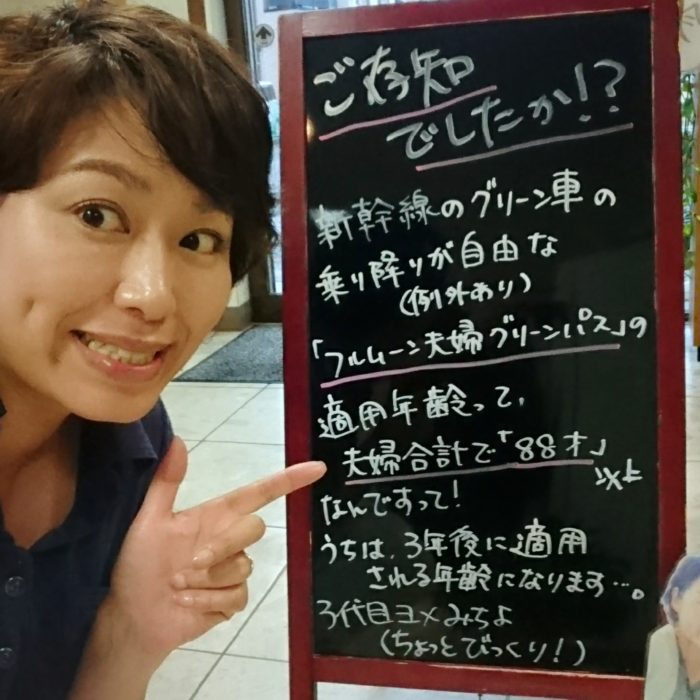 ご存知
でしたか!?
新幹線のグリーン車の
乗り降りが自由な
(例外あり)
「フルムーン夫婦グリーンパス」の
適用年齢って、
夫婦合計で「88才」
以上
なんですって!
うちは、3年後に適用
される年齢になります…。
3代目ヨメみちよ
(ちょっとびっくり!)